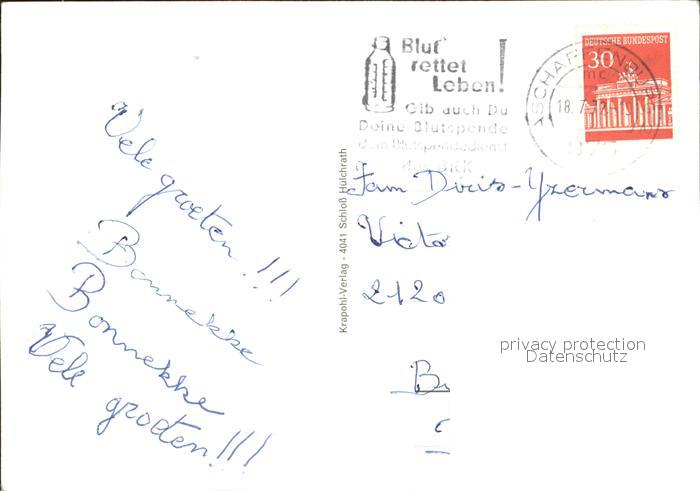 Vele
groeten!!!
Bonnekke
Bonnekke
Vele
groeten!!!
Blut
rettet
Leben!
Gib auch Du
Deine Blutspende
dem Blutspendedienst
des DRK
ASCHAFFENBURG
mc
18.7.
DEUTSCHE BUNDESPOST
30
Krapohl-Verlag - 4041 Schloß Hülchrath
Fam Diris-Yzermans
Victo
2120
privacy protection
Datenschutz